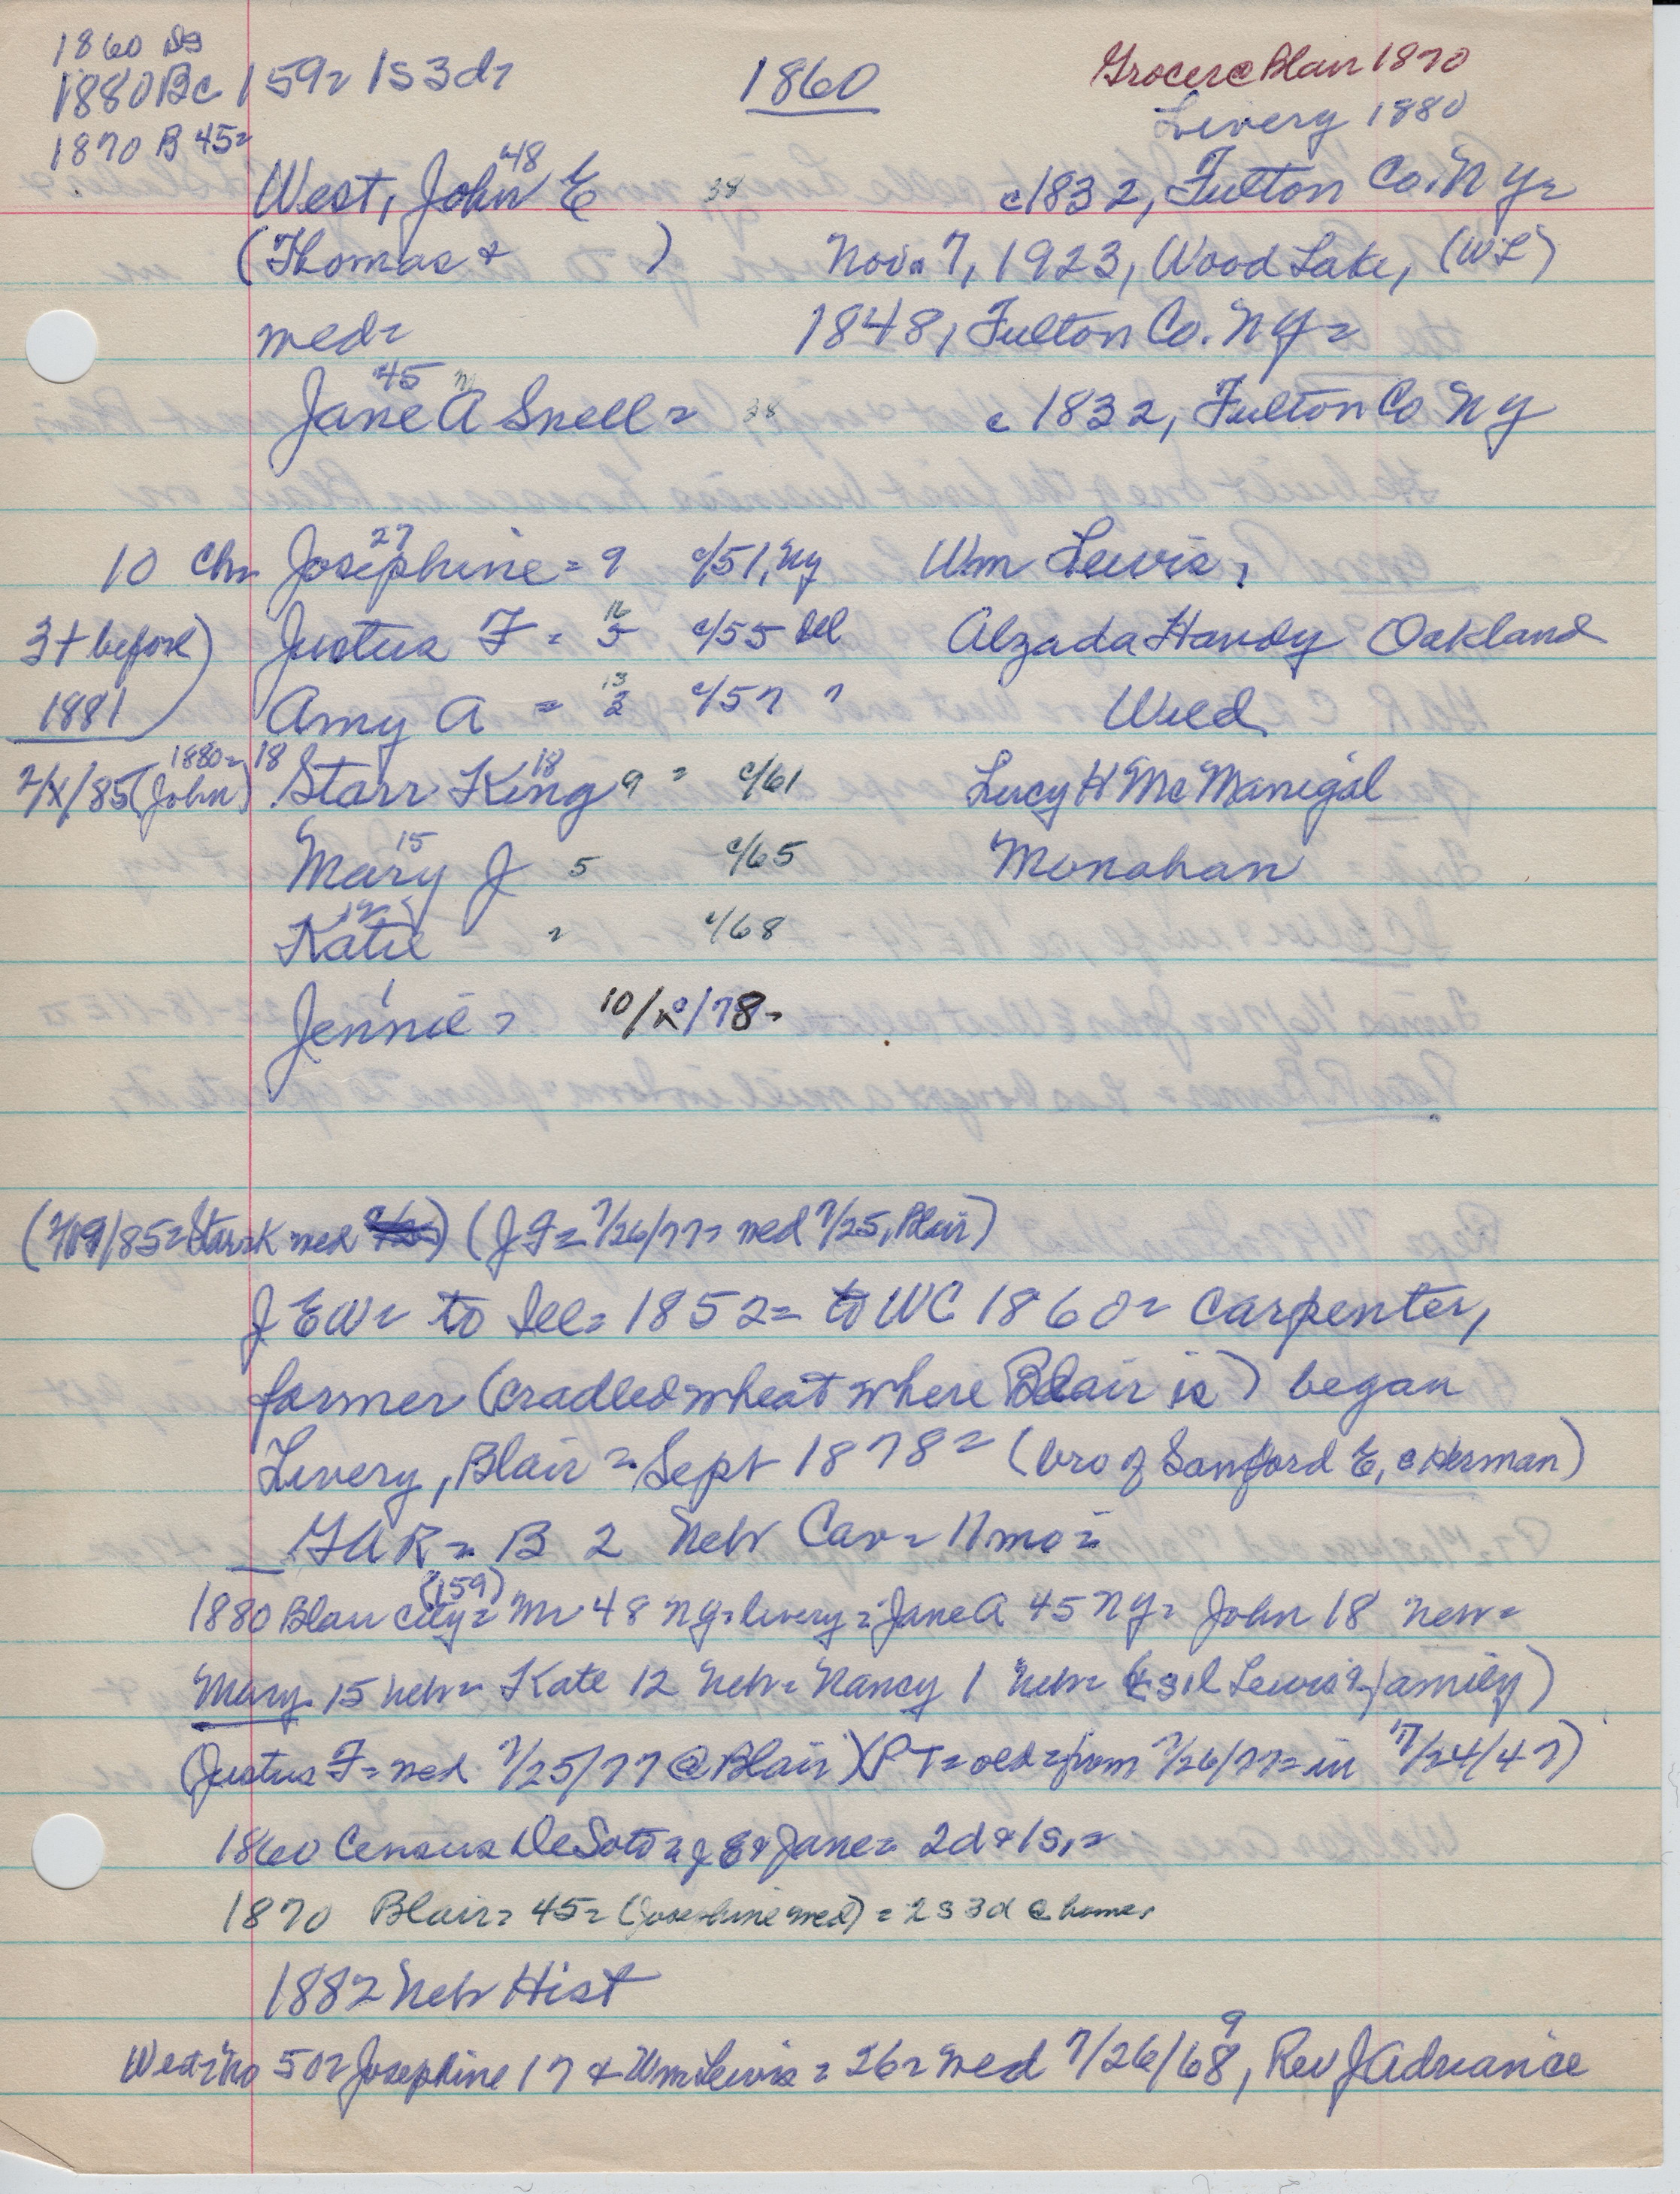 1860 Ds
1880 Bc 159= 1s 3d=
1870 B 45=
1860
Grocer @ Blair 1870
Livery 1880
West, John E 48 38 c1832, Fulton Co. N Y=
(Thomas + ) Nov. 7, 1923, Wood Lake, (WL)
med= 1848, Fulton Co. N Y=
45
Jane A Snell= 38 c 1832, Fulton Co N Y
27
10 Chn Josephine = 9 c/51, Ny Wm Lewis,
16
3 + before) Justus F = 5 c/55 Ill Alzada Handy Oakland
13
1881 Amy A = 2 c/57 " Wild
1880= 18 18
2/x/85 (John) Starr King 9 = c/61 Lucy H McManigal
15
Mary J 5 c/65 Monahan
12
Katie = c/68
1
Jennie = 10/x/78=
(2/19/85= Star K med) (J F= 7/26/77= med 7/25, Blair)
J E W= to Ill= 1852= to WC 1860= Carpenter,
farmer (cradled wheat where Blair is) began
Livery, Blair = Sept 1878= (bro of Sanford E, & Herman)
GAR= B 2 Neb Cav= 11 mo=
(159)
1880 Blair City= Mr 48 NY= livery = Jane A 45 NY= John 18 Neb=
Mary 15 Neb= Kate 12 Neb= Nancy 1 Neb= (& sil Lewis & family)
(Justus F= med 7/25/77 @ Blair) (P T= old = from 7/26/77= in 7/24/47)
1860 Census DeSoto= J E & Jane= 2d & 1s,=
1870 Blair= 45= (Josephine med) = 2 s 3d @ home,
1882 Neb Hist
9
West= No 50= Josephine 17 & Wm Lewis = 26= med 7/26/68, Rev J Adriance